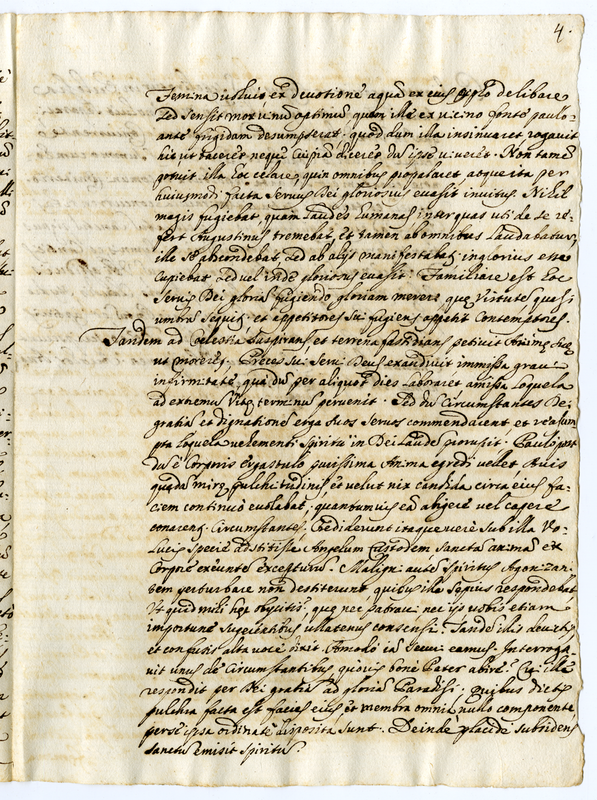 4.
Femina voluit ex devotione aquā ex eius delibare
sed sensit mox vinū optimū quam illa ex vicino fonte paulo-
ante frigidam desumpserat. quod dum illa insinuaret rogavit
hic ut taceret neque Cuipiā diceret dū ipse viveret. Non tamē
potuit illa hoc celare, quin omnibus propalaret adque ita per
huiusmodi facta Servus Dei gloriosius evasit invitus. Nihil
magis fugiebat, quam laudes humanas inter quas uti de se re-
fert Augustinus tremebat, et tamen ab omnibus laudabatur,
ille se abscondebat, sed ab alijs manifestabat, inglorius esse
cupiebat, sed vel inde gloriosus evasit. Familiare est hoc
Servis Dei gloriā fugiendo, gloriam mereri, que Virtutē quasi
umbra sequit, et appetitores sui fugiens appetit Contemptores.
Tandem ad Celestia suspirans et terrena fastidians petivit
ut moreret. Preces sui Servi Deus exaudivit immissa gravi
infirmitate, qua dū per aliquot dies laboraret amissa loquela
ad extremū vitę terminū pervenit. Sed dū Circumstantes Dei
gratiā et dignationē erga suos Servos commendarent et reasum
pta loquela vehementi Spiritu in Dei laudē prorupit. Paulo post
dū è Corporis ergastulo purissima Anima egredi vellet Avis
quędā mirę pulchritudinis, et velut nix candida circa eius fa-
ciem continuò evolabat, quantumvis eā abigere vel capere
conarent Circumstantes. Crediderunt itaque vere sub illa Vo-
lucris specie adstitisse Angelum Custodem Sancta animā ex
Corpore exeuntē excepturū. Maligni autē Spiritus Agonizan-
tem perturbare non destiterunt quibus ille sepius respondebat
Ut quid mihi hęc obijcitis, quę nec patravi nec ijs vobis etiam
importune suggerentibus ullatenus consensi. Tandē illis devictis
et confusis alta voce dixit Eamus Interroga
vit unus de Circumstantibus quovis bone Pater abire? Cui ille
respondit per Dei gratiā ad gloriā Paradisi, quibus dictis
pulchra facta est facies eius et membra omnia nullo componente
per se ipsa ordinatè disposita sunt. Deindè placidè subsidens
sanctus emisit spiritū.